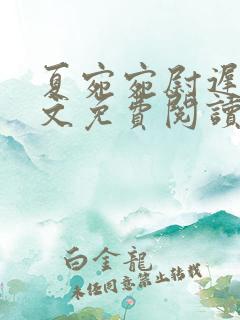 夏宛宛尉遲
文免費閱讀
白金龍
未經同意禁止轉載